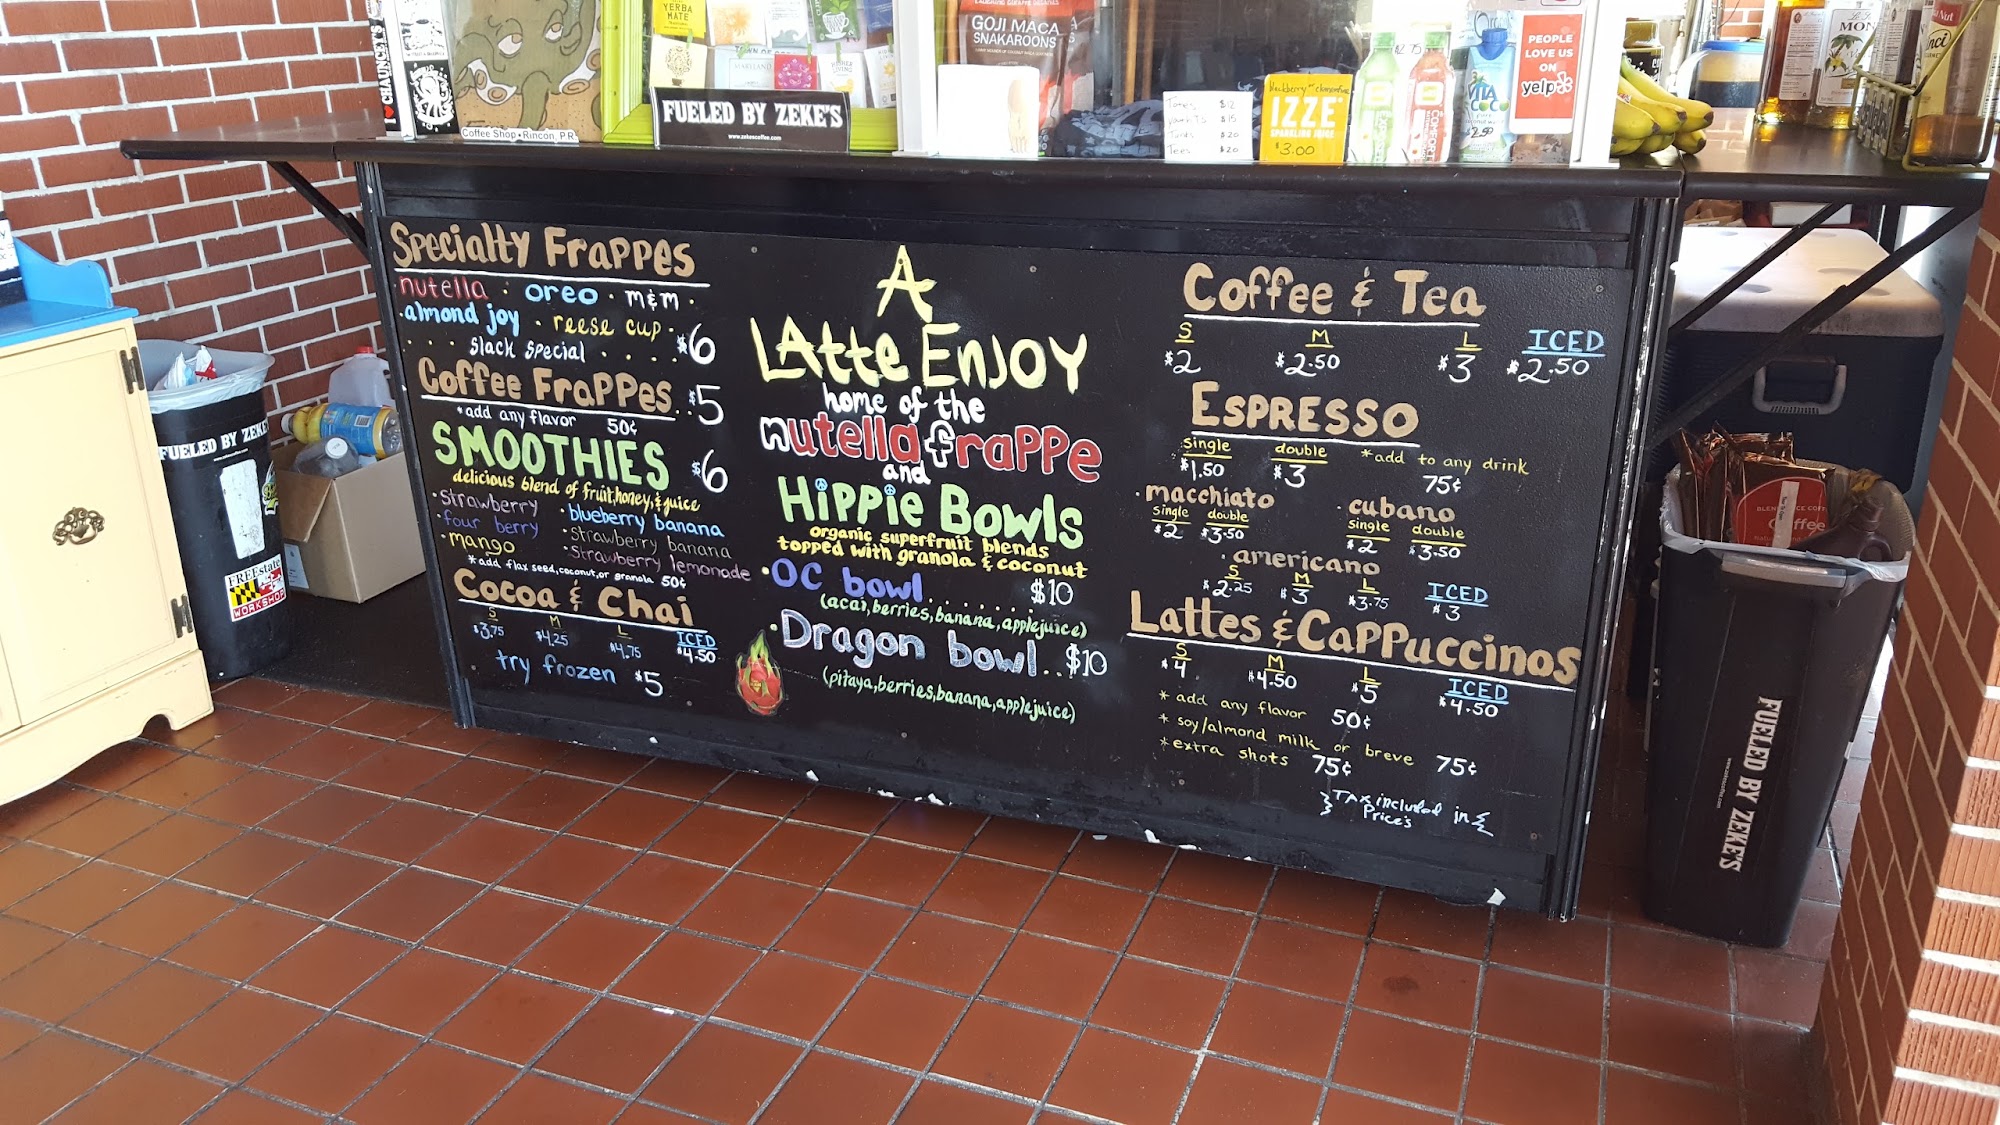 YERBA MATE
GOJI MACA
SNAKAROONS
I ♥ CHAUNCEY'S
Coffee Shop • Rincón, P.R.
FUELED BY ZEKE'S
www.zekescoffee.com
MARYLAND
Totes $12
Tanks $20
Tees $20
IZZE
SPARKLING JUICE
$3.00
VITA
COCO
PEOPLE
LOVE US
ON
yelp
MON
Specialty Frappes
nutella · oreo · m&m ·
· almond joy · reese cup ·
. . . slack special . . . . $6
Coffee Frappes.. $5
*add any flavor 50¢
SMOOTHIES $6
delicious blend of fruit, honey, & juice
· strawberry · blueberry banana
· four berry · Strawberry banana
· mango · Strawberry lemonade
*add flax seed, coconut, or granola 50¢
Cocoa & Chai
S M L ICED
$3.75 $4.25 $4.75 $4.50
try frozen $5
A
LAtte ENJOY
home of the
nutella frappe
and
Hippie Bowls
organic superfruit blends
topped with granola & coconut
· OC bowl....... $10
(acai, berries, banana, apple juice)
· Dragon bowl.. $10
(pitaya, berries, banana, apple juice)
Coffee & Tea
S M L ICED
$2 $2.50 $3 $2.50
ESPRESSO
single double *add to any drink
$1.50 $3 75¢
· macchiato · cubano
single double single double
$2 $3.50 $2 $3.50
· americano
S M L ICED
$2.25 $3 $3.75 $3
Lattes & Cappuccinos
S M L ICED
$4 $4.50 $5 $4.50
* add any flavor 50¢
* soy/almond milk or breve 75¢
*extra shots 75¢
TAX included in
Price's
FUELED BY ZEKE
FREEstate
WORKSHOP
Coffee
FUELED BY ZEKE'S
www.zekescoffee.com